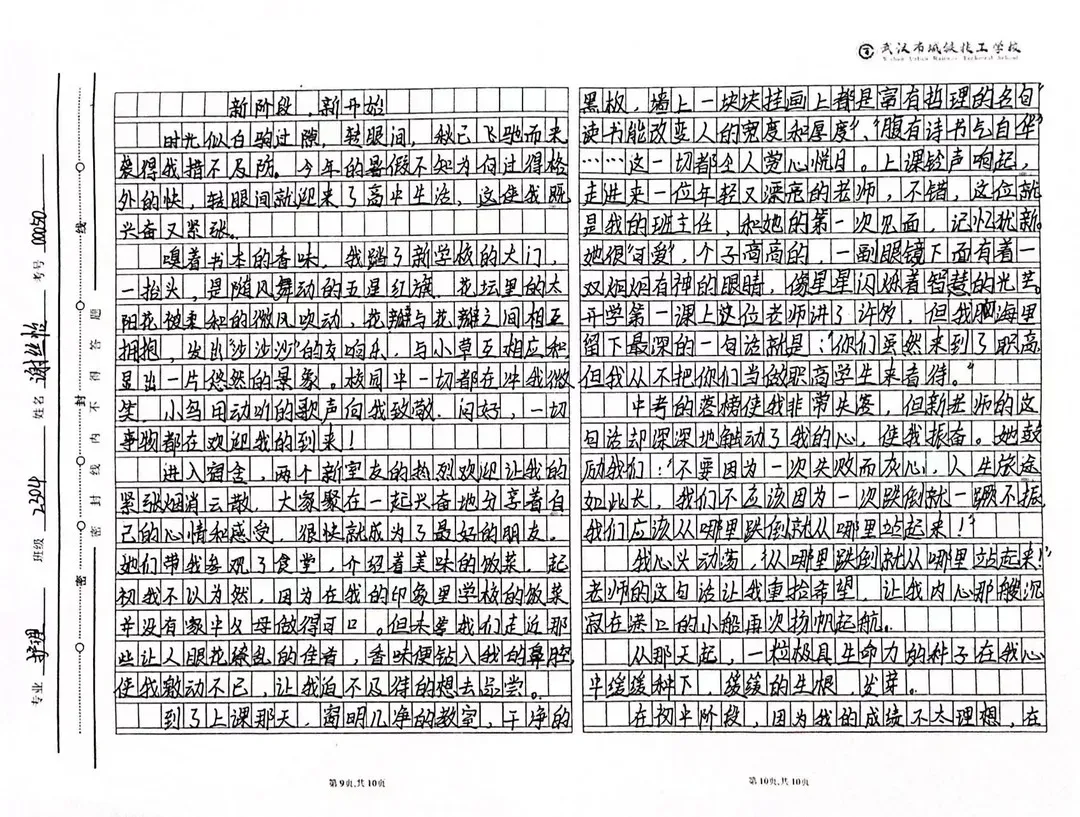 武汉市城镇技工学校
新阶段，新开始
时光似白驹过隙，转眼间，秋已飞驰而来
装得我措不及防。今年的暑假不知为何过得格
外的快，转眼间就迎来了高中生活，这使我既
兴奋又紧张。
嗅着书本的香味，我踏了新学校的大门，
一抬头，是随风舞动的五星红旗，花坛里的太
阳花被柔和的微风吹动，花瓣与花瓣之间相互
拥抱，发出“沙沙沙”的交响乐，与小草互相应和
显出一片悠然的景象。校园中一切都在冲我微
笑，小鸟用动听的歌声向我致敬、问好，一切
事物都在欢迎我的到来！
进入宿舍，两个新室友的热烈欢迎让我的
紧张烟消云散，大家聚在一起兴奋地分享着自
己的心情和感受，很快就成为了最好的朋友。
她们带我参观了食堂，介绍着美味的饭菜，起
初我不以为然，因为在我的印象里学校的饭菜
并没有家中父母做得可口。但未等我们走近那
些让人眼花缭乱的佳肴，香味便钻入我的鼻腔
使我激动不已，让我迫不及待的想去品尝。
到了上课那天，窗明几净的教室，干净的
黑板，墙上一块块挂画上都是富有哲理的名句“
读书能改变人的宽度和厚度”、“腹有诗书气自华”
……这一切都令人赏心悦目。上课铃声响起，
走进来一位年轻又漂亮的老师，不错，这位就
是我的班主任，和她的第一次见面，记忆犹新。
她很“可爱”，个子高高的，一副眼镜下面有着一
双炯炯有神的眼睛，像星星闪烁着智慧的光芒。
开学第一课上这位老师讲了许多，但我脑海里
留下最深的一句话就是：“你们虽然来到了职高
但我从不把你们当做职高学生来看待。”
中考的落榜使我非常失落，但新老师的这
句话却深深地触动了我的心，使我振奋。她鼓
励我们：“不要因为一次失败而灰心，人生旅途
如此长，我们不应该因为一次跌倒就一蹶不振
我们应该从哪里跌倒就从哪里站起来！”
我心头动荡，“从哪里跌倒就从哪里站起来！”
老师的这句话让我重拾希望，让我内心那艘沉
寂在港口的小船再次扬帆起航。
从那天起，一粒极具生命力的种子在我心
中缓缓种下，缓缓的生根，发芽。
在初中阶段，因为我的成绩不太理想，在
第9页,共10页
第10页,共10页
专业 护理 班级 2304 姓名 考号 00050
密 封 线
密封线内不得答题